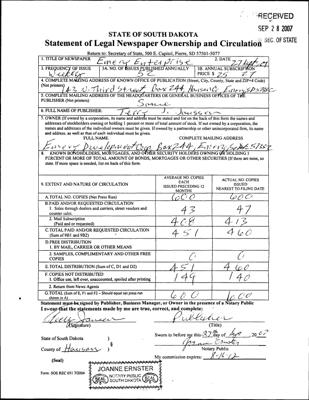 RECEIVED
SEP 28 2007
SEC. OF STATE
STATE OF SOUTH DAKOTA
Statement of Legal Newspaper Ownership and Circulation
Return to: Secretary of State, 500 E. Capitol, Pierre, SD 57501-5077
1. TITLE OF NEWSPAPER Emery Enterprise 2. DATE 27 Sept 07
3. FREQUENCY OF ISSUE Weekly 3A. NO. OF ISSUES PUBLISHED ANNUALLY 52 3B. ANNUAL SUBSCRIPTION PRICE $ 25 27
4. COMPLETE MAILING ADDRESS OF KNOWN OFFICE OF PUBLICATION (Street, City, County, State and ZIP+4 Code) (Not printers)
Third Street Box 244 Emery SD
5. COMPLETE MAILING ADDRESS OF THE HEADQUARTERS OR GENERAL BUSINESS OFFICES OF THE PUBLISHER (Not printers) Same
6. FULL NAME OF PUBLISHER: Terry J.
7. OWNER (If owned by a corporation, its name and address must be stated and also on the back of this form the names and addresses of stockholders owning or holding 1 percent or more of total amount of stock. If not owned by a corporation, the names and addresses of the individual owners must be given. If owned by a partnership or other unincorporated firm, its name and address, as well as that of each individual must be given.
FULL NAME COMPLETE MAILING ADDRESS
Emery Development Corp Box 244 Emery
8. KNOWN BONDHOLDERS, MORTGAGEES, AND OTHER SECURITY HOLDERS OWNING OR HOLDING 1 PERCENT OR MORE OF TOTAL AMOUNT OF BONDS, MORTGAGES OR OTHER SECURITIES (If there are none, so state. If more space is needed, list on back of this form.
9. EXTENT AND NATURE OF CIRCULATION
AVERAGE NO. COPIES EACH ISSUED PRECEDING 12 MONTHS
ACTUAL NO. COPIES ISSUED NEAREST TO FILING DATE
A. TOTAL NO. COPIES (Net Press Run) 600 600
B. PAID AND/OR REQUESTED CIRCULATION
1. Sales through dealers and carriers, street vendors and counter sales. 43 47
2. Mail Subscription (Paid and or requested) 408 413
C. TOTAL PAID AND/OR REQUESTED CIRCULATION (Sum of 9B1 and 9B2) 451 460
D. FREE DISTRIBUTION
1. BY MAIL, CARRIER OR OTHER MEANS
2. SAMPLES, COMPLIMENTARY AND OTHER FREE COPIES 0 0
E. TOTAL DISTRIBUTION (Sum of C, D1 and D2) 451 460
F. COPIES NOT DISTRIBUTED
1. Office use, left over, unaccounted, spoiled after printing 149 140
2. Return from News Agents
G. TOTAL (Sum of E, F1 and F2 - Should equal net press run shown in A) 600 600
Statement must be signed by Publisher, Business Manager, or Owner in the presence of a Notary Public
I swear that the statements made by me are true, correct, and complete:
Publisher
(Signature) (Title)
State of South Dakota )
County of Hanson )
Sworn to before me this 27th day of Sept 2007
Notary Public
(Seal)
My commission expires: 8-16-12
Form: SOS REC 051 7/2004
JOANNE ERNSTER
NOTARY PUBLIC
SOUTH DAKOTA
SEAL SEAL